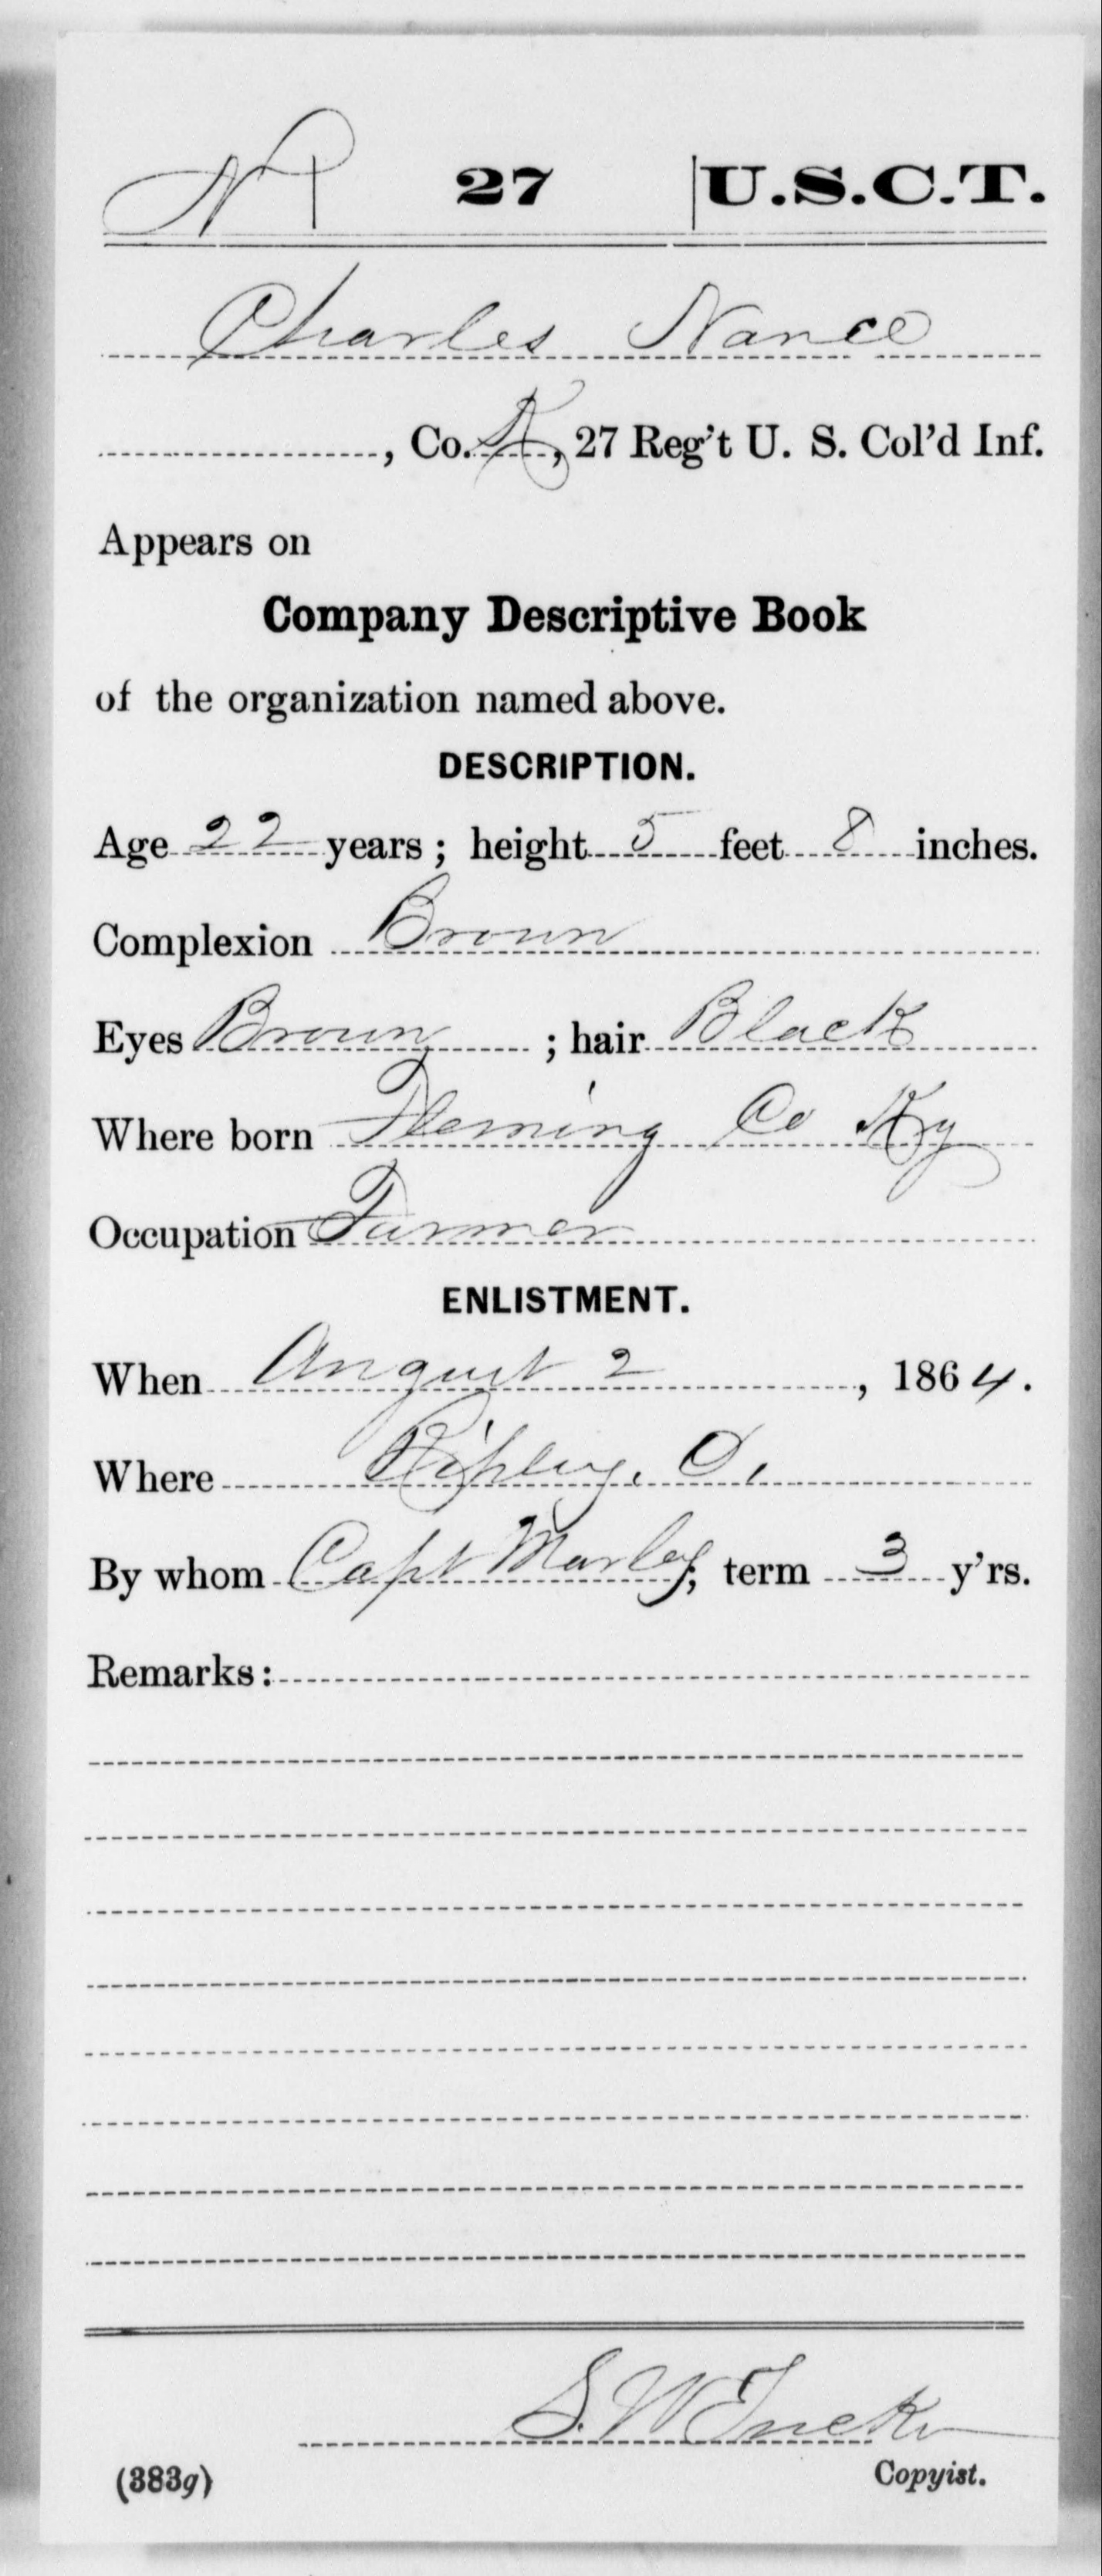 N 27 U.S.C.T.
Charles Nance
, Co. K, 27 Reg't U. S. Col'd Inf.
Appears on
Company Descriptive Book
of the organization named above.
DESCRIPTION.
Age 22 years; height 5 feet 8 inches.
Complexion Brown
Eyes Brown ; hair Black
Where born Fleming Co Ky
Occupation Farmer
ENLISTMENT.
When August 2, 1864.
Where Ripley, O.
By whom Capt Marley, term 3 y'rs.
Remarks:
S. W.
(383g) Copyist.